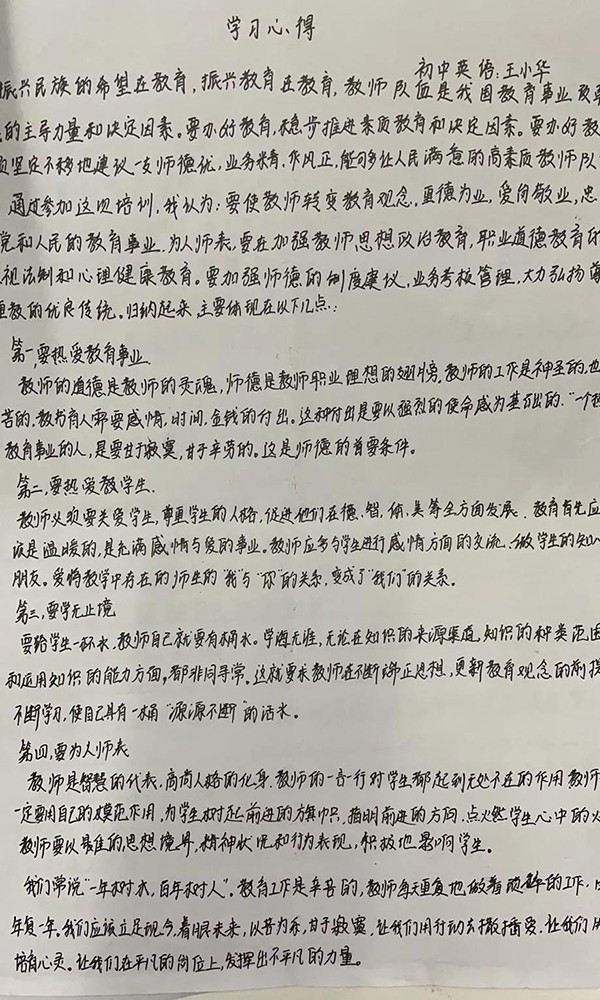 学习心得
初中英语:王小华
振兴民族的希望在教育,振兴教育在教育,教师队伍是我国教育事业改革
的主导力量和决定因素。要办好教育,稳步推进素质教育和决定因素。要办好教
坚定不移地建议一支师德优,业务精,作风正,能够多让人民满意的高素质教师队
通过参加这次培训,我认为:要使教师转变教育观念,重德为业,爱岗敬业,忠
党和人民的教育事业.为人师表,要在加强教师思想政治教育,职业道德教育的
视法制和心理健康教育。要加强师德的制度建议,业务考核管理,大力弘扬尊
重教的优良传统。归纳起来,主要体现在以下几点:
第一,要热爱教育事业.
教师的道德是教师的灵魂,师德是教师职业理想的翅膀.教师的工作是神圣的,也
苦的.教书育人需要感情,时间,金钱的付出。这种付出是要以强烈的使命感为基石出的.“一个
教育事业的人,是要甘于寂寞,甘于辛劳的。这是师德的首要条件。
第二,要热爱教学生.
教师必须要关爱学生,尊重学生的人格,促进他们在德、智、体、美等全方面发展.教育首先应
该是温暖的,是充满感情与爱的事业。教师应多与学生进行感情方面的交流、做学生的知心
朋友。爱将教学中存在的师生的“我”与“你”的关系,变成了“我们”的关系。
第三,要学无止境
要给学生一杯水,教师自己就要有桶水。学海无涯,无论在知识的来源渠道,知识的种类范围
和运用知识的能力方面,都非同寻常。这就要求教师在不断端正思想,更新教育观念的前提
不断学习,使自己具有一桶“源源不断”的活水。
第四,要为人师表
教师是智慧的代表,高尚人格的化身.教师的一言一行对学生都起到无处不在的作用.教师
一定要用自己的模范作用,为学生树起前进的方旗帜,指明前进的方向,点燃学生心中的火
教师要以最佳的思想境界,精神状况和行为表现,积极地影响学生。
我们常说“一年树木,百年树人”。教育工作是辛苦的,教师每天重复地做着琐碎的工作,
年复一年。我们应该立足现今,着眼未来,以苦为乐,甘于寂寞,让我们用行动去播播爱.让我们用
培育心灵。让我们在平凡的岗位上,发挥出不平凡的力量。